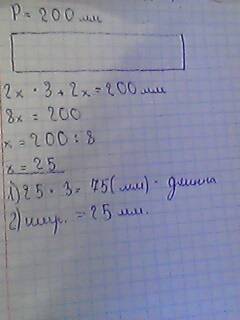 P = 200 мм
2x · 3 + 2x = 200 мм
8x = 200
x = 200 : 8
x = 25
1) 25 · 3 = 75 (мм) · длинна
2) шир. = 25 мм.